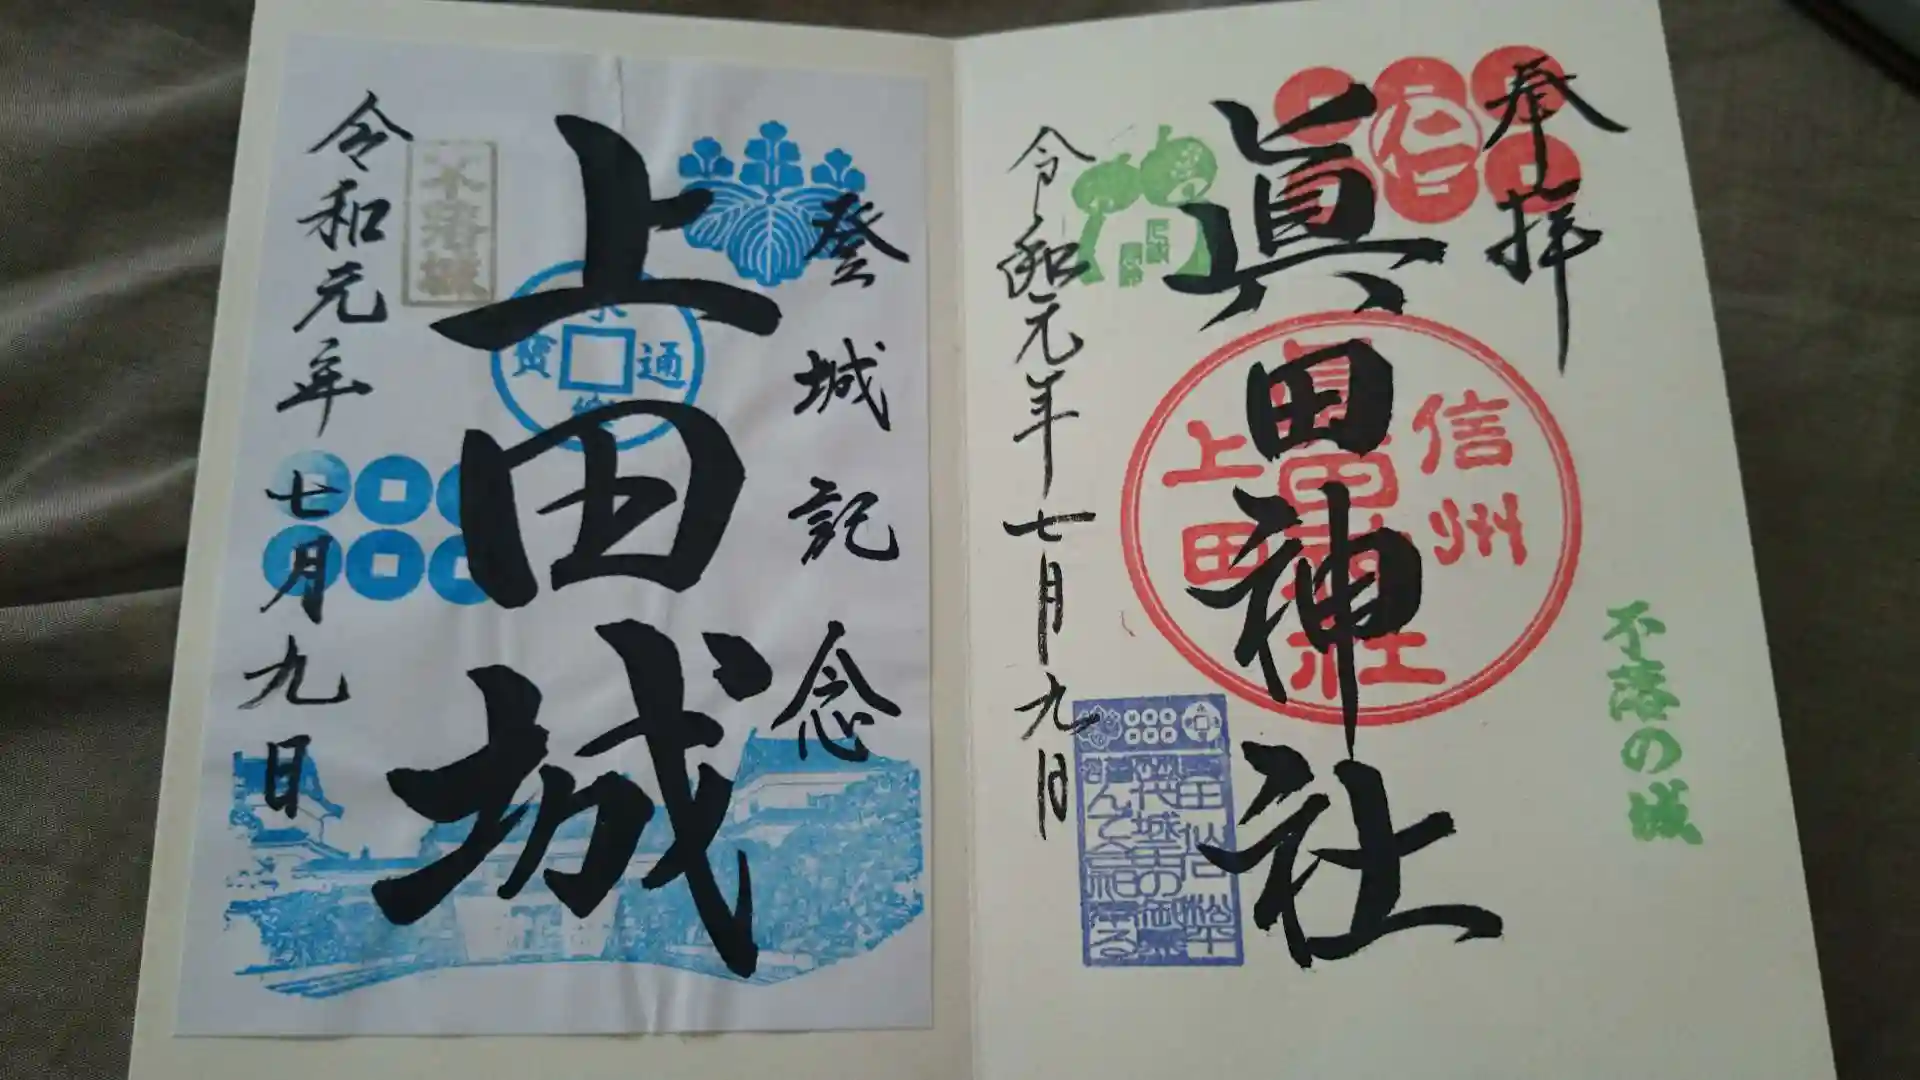 奉拝
仁
眞田神社
信州
上田
眞田神社
不落の城
令和元年七月九日
登城記念
上田城
永
通
寳
不落城
令和元年
七月九日